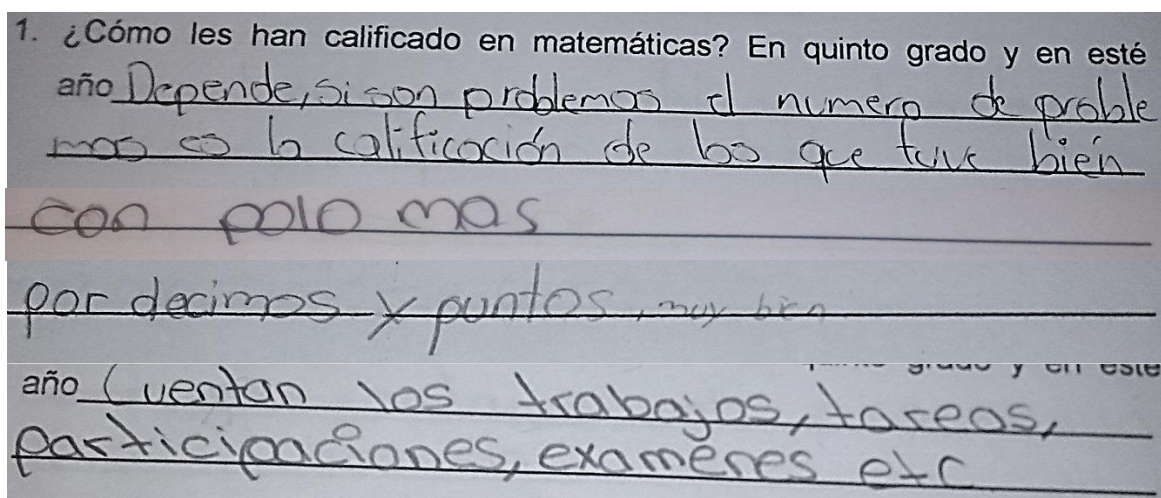 1. ¿Cómo les han calificado en matemáticas? En quinto grado y en esté
año Depende, si son problemas el numero de proble
mas es la calificación de las que tuve bien
con polo mas
por decimos y puntos, muy bien
grado y en este
año Cuentan los trabajos, tareas,
participaciones, examenes etc